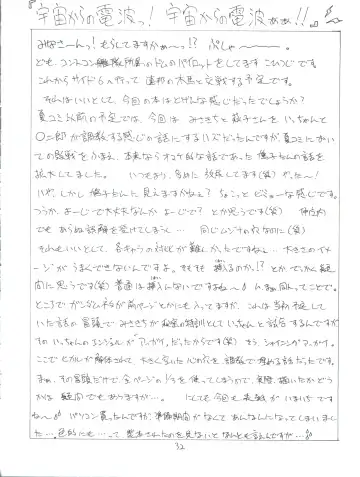 『宇宙からの電波っ! 宇宙からの電波ぁぁ!!』
みなさーんっ!もらしてますかぁ〜っ!? ぷしゃ〜〜。
どもコントロン艦隊所属のドムのパイロットをしてます こひつじです。
これからサイド6へ行って 連邦の木馬と交戦する予定です。
それはいいとして、今回の本はどんな感じだったでしょうか?
夏コミ以前の予定では、今回は みさきちと 子さんを いっちゃんと
〇二郎が調教する感じの話にするハズだったんですが夏コミにおい
ての敗戦をふまえ、本来ならオマケ的な話であった 子たんの話を
拡大してみました。 いつもより 多めに 放尿してます(笑) が…た〜ん!
いや、しかし 子たんに見えますかねぇ? ちょこっとビミョーな感じです。
つうか、よーじで大丈夫なんか よーじで? とか思うです(笑)
でも あらぬ誤解を受けてしまう… 同じムジナの穴なのに(笑)
それもいいとして、各キャラの対比が難しかったですねぇ… 大きさのイメ
ージがうまくできないんですよ。そもそも 挿入るのか!? とかっていう疑
問に思うです(笑) 普通は挿入んないですよね〜♪ ってことで。
ところでガンダムネタが前ページとかにも入ってますが、これは当初予定して
いた話の冒頭で みさきちが秘密の特訓としていっちゃんと話合するんですが
その いっちゃんのエンジェルが「アッガイ」だったからです(笑) もう、シャイニングアッガイ。
ここで ヒカルが解体されて 大きく空いた心の穴を 調教で埋める話だったです。
まぁ、その冒頭だけで 全ページの1/3を使ってしまうので、実際、描いたかどう
かは 疑問でもありますが…。 にしても今回も表紙が いまいちです
ね〜♪ パソコン買ったんですが、準備期間がなくて あんなんなってしまいまし
た…。色的にも…って 製本されたのを見ないとなんとも言えんですが…♪
32